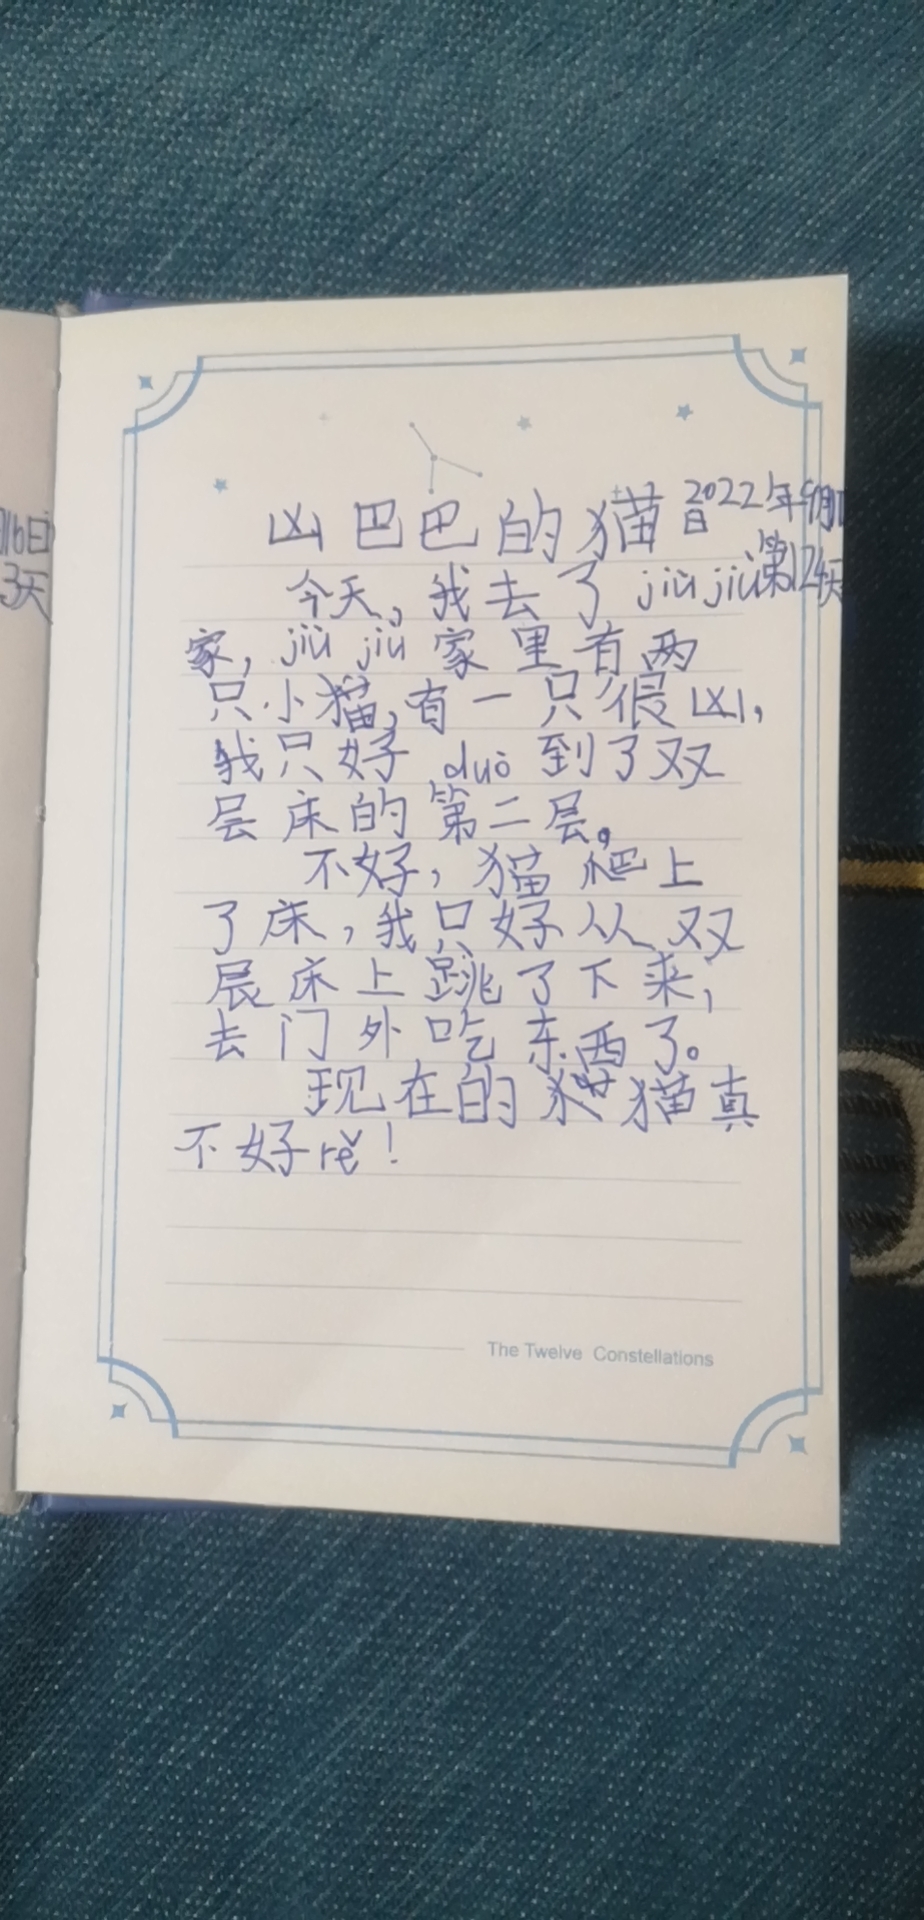 16日
3天
凶巴巴的猫 2022年9月17日
第124天
今天,我去了jiù jiu
家,jiù jiu家里有两
只小猫,有一只很凶,
我只好duǒ到了双
层床的第二层。
不好,猫爬上
了床,我只好从双
层床上跳了下来,
去门外吃东西了。
现在的猫真
不好rě!
The Twelve Constellations